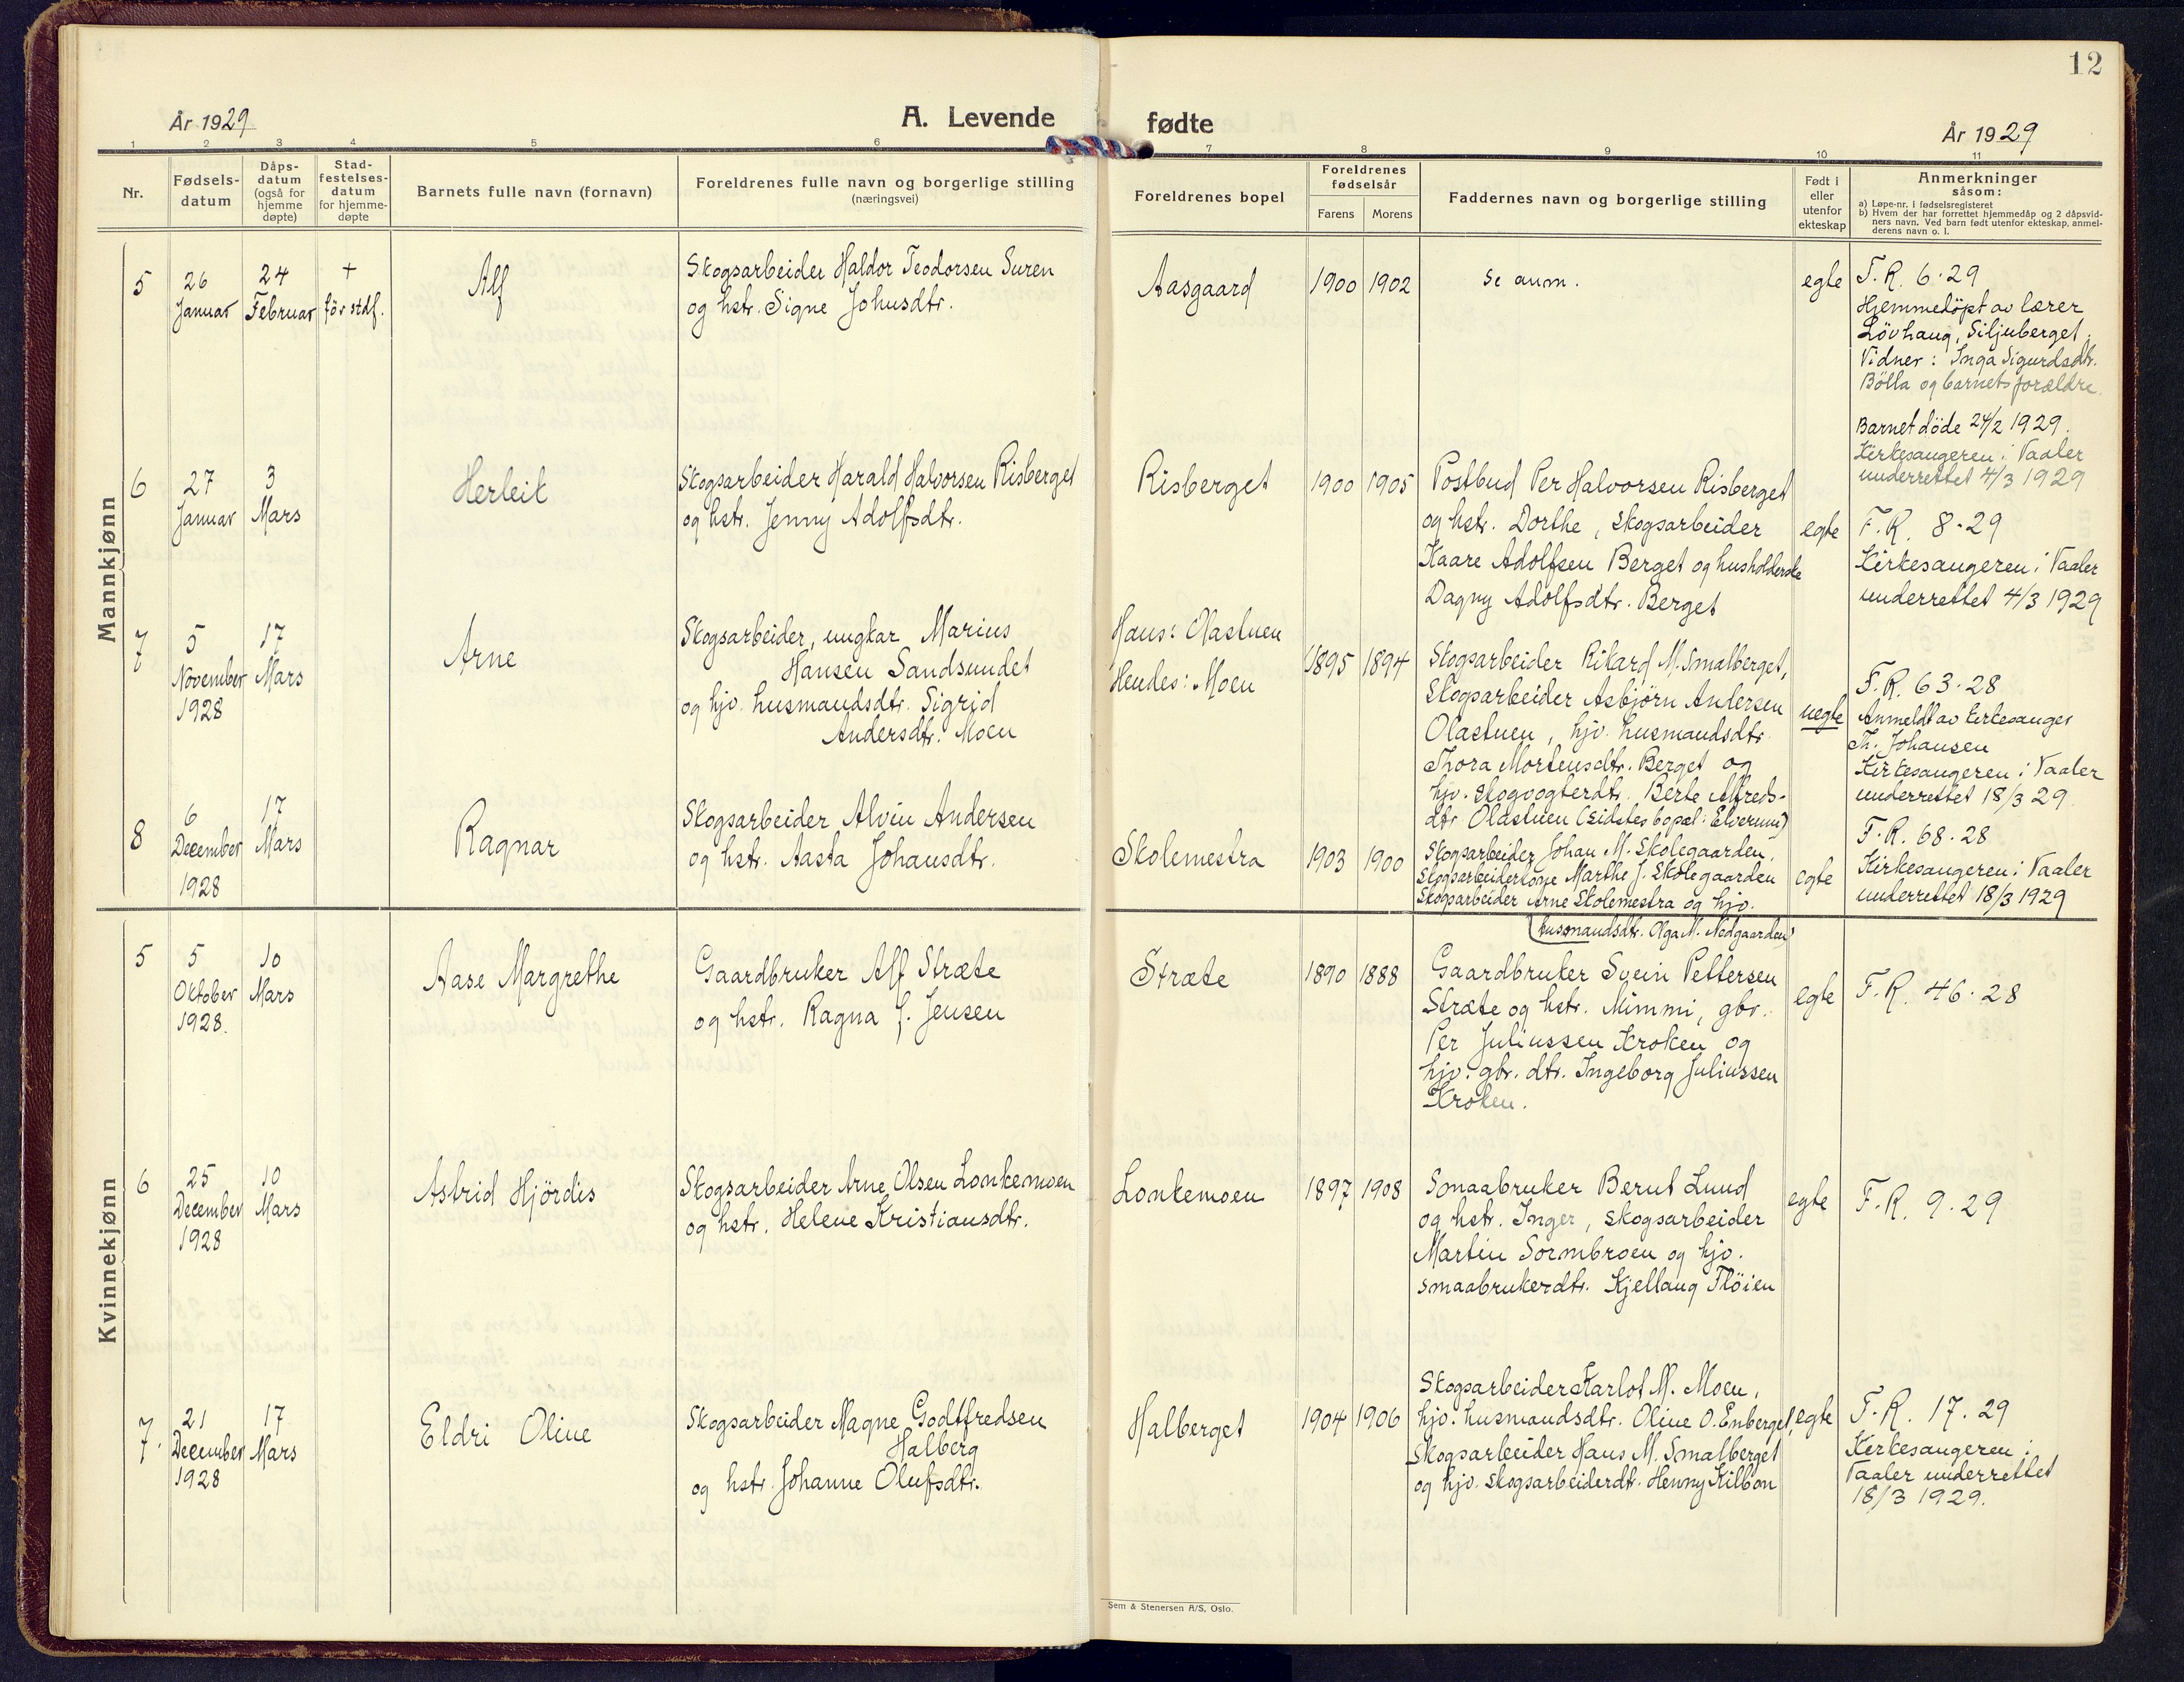 12
År 1929
A. Levende fødte
År 1929
1 2 3 4 5 6 7 8 9 10 11
Nr.
Fødsels-
datum
Dåps-
datum
(også for
hjemme
døpte)
Stad-
festelses-
datum
for hjemme-
døpte
Barnets fulle navn (fornavn)
Foreldrenes fulle navn og borgerlige stilling
(næringsvei)
Foreldrenes bopel
Foreldrenes
fødselsår
Farens Morens
Faddernes navn og borgerlige stilling
Født i
eller
utenfor
ekteskap
Anmerkninger
såsom:
a) Løpe-nr. i fødselsregisteret
b) Hvem der har forrettet hjemmedåp og 2 dåpsvid-
ners navn. Ved barn født utenfor ekteskap, anmel-
derens navn o. l.
Mannkjønn
5
26
Januar
24
Februar
+
før stdf.
Alf
Skogsarbeider Haldor Teodorsen Suren
og hstr. Signe Johusdtr.
Aasgaard
1900 1902
Se anm.
egte
F.R. 6-29
Hjemmedöpt av lærer
Lövhaug, Siljuberget.
Vidner: Inga Sigurdsdtr.
Bölla og barnets forældre.
Barnet döde 24/2 1929.
Kirkesangeren i Vaaler
underrettet 4/3 1929
6
27
Januar
3
Mars
Herleik
Skogsarbeider Harald Halvorsen Risberget
og hstr. Jenny Adolfsdtr.
Risberget
1900 1905
Postbud Per Halvorsen Risberget
og hstr. Dorthe, skogsarbeider
Kaare Adolfsen Berget og husholderske
Dagny Adolfsdtr. Berget
egte
F.R. 8-29
Kirkesangeren i Vaaler
underrettet 4/3 1929
7
5
November
1928
17
Mars
Arne
Skogsarbeider, ungkar Marius
Hansen Sandsundet
og hjv. husmandsdtr. Sigrid
Andersdtr. Moen
Hans: Olastuen
Hendes: Moen
1895 1894
Skogsarbeider Rikard M. Smalberget,
Skogsarbeider Asbjørn Andersen
Olastuen, hjv. husmandsdtr.
Thora Mortensdtr. Berget og
hjv. skogvogterdtr. Berte Alfreds-
dtr Olastuen (Sidstes bopæl: Elverum)
uegte
F.R. 63-28
Anmeldt av kirkesanger
Th. Johansen
Kirkesangeren i Vaaler
underrettet 18/3 29.
8
6
December
1928
17
Mars
Ragnar
Skogsarbeider Alvin Andersen
og hstr. Aasta Johansdtr.
Skolemestra
1903 1900
Skogsarbeider Johan M. Skolegaarden,
Skogsarbeiderkone Marthe J. Skolegaarden
Skogsarbeider Arne Skolemestra og hjv.
husmandsdtr. Olga M. Nedgaarden
egte
F.R. 68-28
Kirkesangeren i Vaaler
underrettet 18/3 1929
Kvinnekjønn
5
5
Oktober
1928.
10
Mars
Aase Margrethe
Gaardbruker Alf Stræte
og hstr. Ragna J. Jensen
Stræte
1890 1888
Gaardbruker Svein Pettersen
Stræte og hstr. Mimmi, gbr.
Per Juliussen Kroken og
hjv. gbr. dtr. Ingeborg Juliussen
Kroken.
egte
F.R. 46-28
6
25
December
1928
10
Mars
Astrid Hjördis
Skogsarbeider Arne Olsen Lonkemoen
og hstr. Helene Kristiansdtr.
Lonkemoen
1897 1908
Smaabruker Bernt Lund
og hstr. Inger, skogsarbeider
Martin Sormbroen og hjv.
smaabrukerdtr. Kjellaug Flöien
egte
F.R. 9-29
7.
21
December
1928
17
Mars
Eldri Oline
Skogsarbeider Magne Godtfredsen
Halberg
og hstr. Johanne Olufsdtr.
Halberget
1904 1906
Skogsarbeider Karlot M. Moen,
hjv. husmandsdtr. Oline O. Enberget,
Skogsarbeider Hans M. Smalberget
og hjv. skogsarbeiderdtr. Henny Kilbon
egte
F.R. 17.29
Kirkesangeren i
Vaaler underrettet
18/3 1929.
Sem & Stenersen A/S, Oslo.